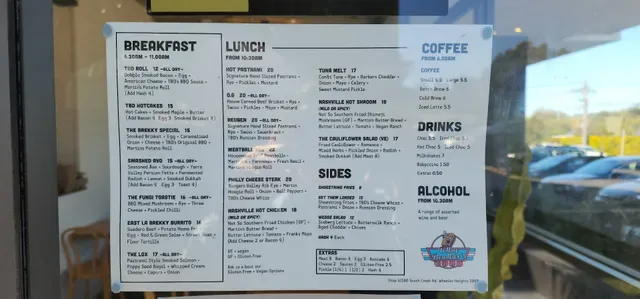 BREAKFAST
6.30AM - 11.00AM
TBD ROLL 12 -ALL DAY-
Double Smoked Bacon + Egg +
American Cheese + TBD's BBQ Sauce +
Martin's Potato Roll
[Add Hash 4]
TBD HOTCAKES 15
Hot Cakes + Smoked Maple + Butter
[Add Bacon 6 Egg 3 Smoked Brisket 6]
THE BREKKY SPECIAL 15
Smoked Brisket + Egg + Caramelised
Onion + Cheese + TBD's Original BBQ +
Martins Potato Roll
SMASHED AVO 15 -ALL DAY-
Seasoned Avo + Sourdough + Yarra
Valley Persian Fetta + Fermented
Radish + Lemon + Smoked Dukkah
[Add Bacon 6 Egg 3 Toast 4]
THE FUNGI TOASTIE 16 -ALL DAY-
BBQ Mixed Mushrooms + Rye + Three
Cheese + Pickled Chilli
EAST LA BREKKY BURRITO
Beef + Potato Home Fries +
Egg + Red & Green Salsa +
Flour Tortilla
THE LOX 17 -ALL DAY-
Pastrami Style Smoked Salmon +
Poppy Seed Bagel + Whipped Cream
Cheese + Capers + Onion
LUNCH
FROM 10:30AM
HOT PASTRAMI 20
Signature Hand Sliced Pastrami +
Rye + Pickles + Mustard
O.G 20 -ALL DAY-
House Corned Beef Brisket + Rye +
Swiss + Pickles + Mayo + Mustard
REUBEN 20 -ALL DAY-
Signature Hand Sliced Pastrami +
Rye + Swiss + Sauerkraut +
TBD's Russian Dressing
Marinara + Parmesan + Fresh Basil +
Martins Hoagie Roll
PHILLY CHEESE STEAK 20
Rangers Valley Rib Eye + Martin
Hoagie Roll + Onion + Bell Pepper +
TBD's Cheese Whizz
NASHVILLE HOT CHICKEN 18
(MILD OR SPICY)
Not So Southern Fried Chicken [GF] +
Martion Butter Bread +
Butter Lettuce + Tomato + Franks Mayo
[Add Cheese 2 or Bacon 6]
VE = vegan
GF = Gluten-Free
Ask us about our
Gluten-Free + Vegan Options
TUNA MELT 17
Confit Tuna + Rye + Barbers Cheddar +
Onion + Mayo + Celery +
Sweet Mustard Pickle
NASHVILLE HOT SHROOM 18
(MILD OR SPICY)
Not So Southern Fried Shimeji
Mushrooms [GF] + Martion Butter Bread +
Butter Lettuce + Tomato + Vegan Ranch
THE CAULIFLOWER SALAD (VE) 17
Fried Cauliflower + Romesco +
Mixed Herbs + Pickled Onion + Radish +
Smoked Dukkah [Add Meat 8]
SIDES
SHOESTRING FRIES 8
GET THEM LOADED 15
Shoestring Fries + TBD's Cheese Whizz +
Pastrami + Onion + Russian Dressing
WEDGE SALAD 12
Iceberg Lettuce + Buttermilk Ranch +
Aged Cheddar + Chives
HASH 4 Each
EXTRAS
Meat 8 Bacon 6 Egg 3 Avocado 6
Cheese 2 Sauces 2 Gluten-Free 2.5
Hash 4
COFFEE
FROM 6.30AM
COFFEE
Small 5.0 Large 5.5
Batch Brew 6
Cold Brew 6
Iced Latte 5.5
DRINKS
Chai 5.5
Hot Choc 5
Milkshakes 7
Babyccino 1.50
Extras 0.50
ALCOHOL
FROM 10.30AM
A range of assorted
wine and beer